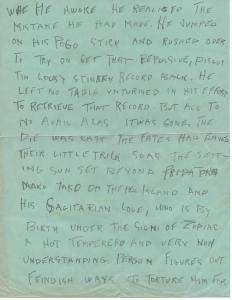 WHE HE AWOKE HE REALISED THE
MISTAKE HE HAD MADE. HE JUMPED
ON HIS POGO STICK AND RUSHED OVER
TO TRY ON GET THAT REPULSIVE, DISGUS
TIN LOUSY STINKEY RECORD BACK. HE
LEFT NO TABLE UNTURNED IN HIS EFFORT
TO RETRIEVE THAT RECORD. BUT ALL TO
NO AVAIL ALAS IT WAS GONE. THE
DIE WAS CAST THE FATES HAD
THEIR LITTLE TRICK SO AS THE SETT-
ING SUN SET BEYOND
ISLAND AND
HIS SAGITARIAN LOVE, WHO IS BY
BIRTH UNDER THE SIGN OF ZODIAC
A HOT TEMPERED AND VERY NON
UNDERSTANDING PERSON FIGURES OUT
FEINDISH WAYS TO TORTURE HIM FOR